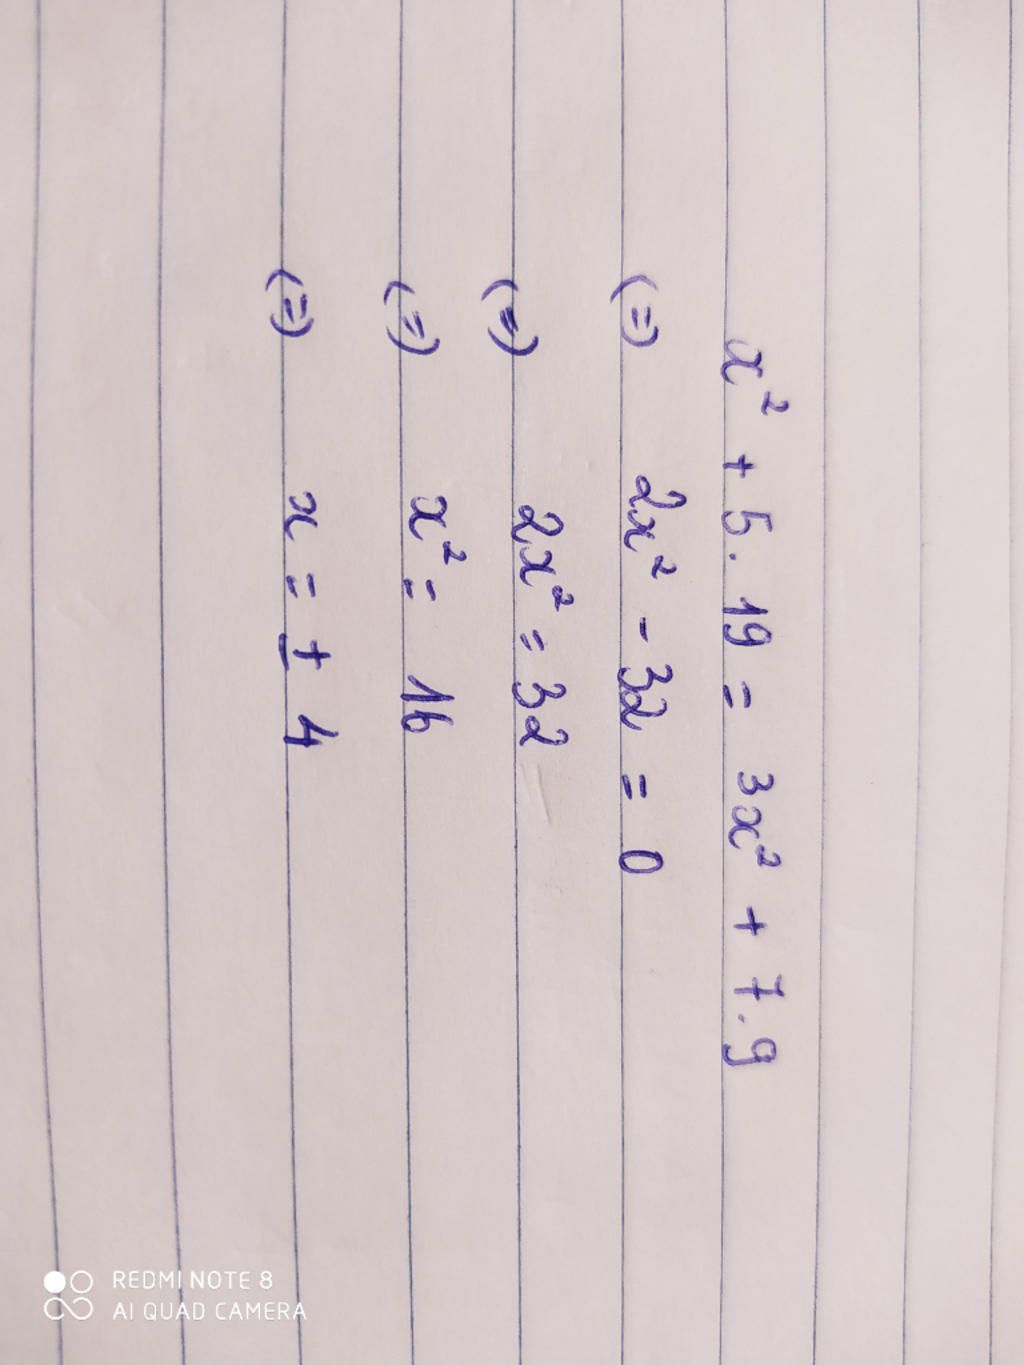 x² + 5. 19 = 3x² + 7.9
(=) 2x² - 32 = 0
(=) 2x² = 32
(=) x² = 16
(=) x = ± 4
REDMI NOTE 8
AI QUAD CAMERA